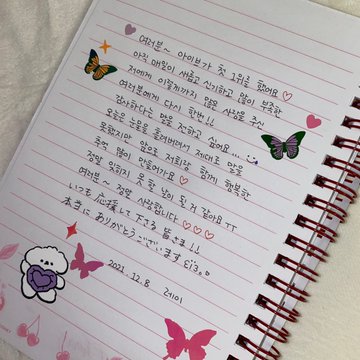 여러분~ 아이브가 첫 1위를 했어요♡
아직 매일이 새롭고 신기하고 많이 부족한
저에게 이렇게까지 많은 사랑을 주신
여러분에게 다시 한번!!
감사하다는 말을 전하고 싶어요...
오늘은 눈물을 흘려버려서 제대로 말을
못했지만 앞으로 저희랑 함께 행복한
추억 많이 만들어가요♡
정말 잊히지 못할 날이 된 것 같아요ㅠㅠ
여러분~ 정말 사랑합니다♡♡♡
いつも応援して下さる皆さま!!
本当にありがとうございます
2021. 12. 8 레이